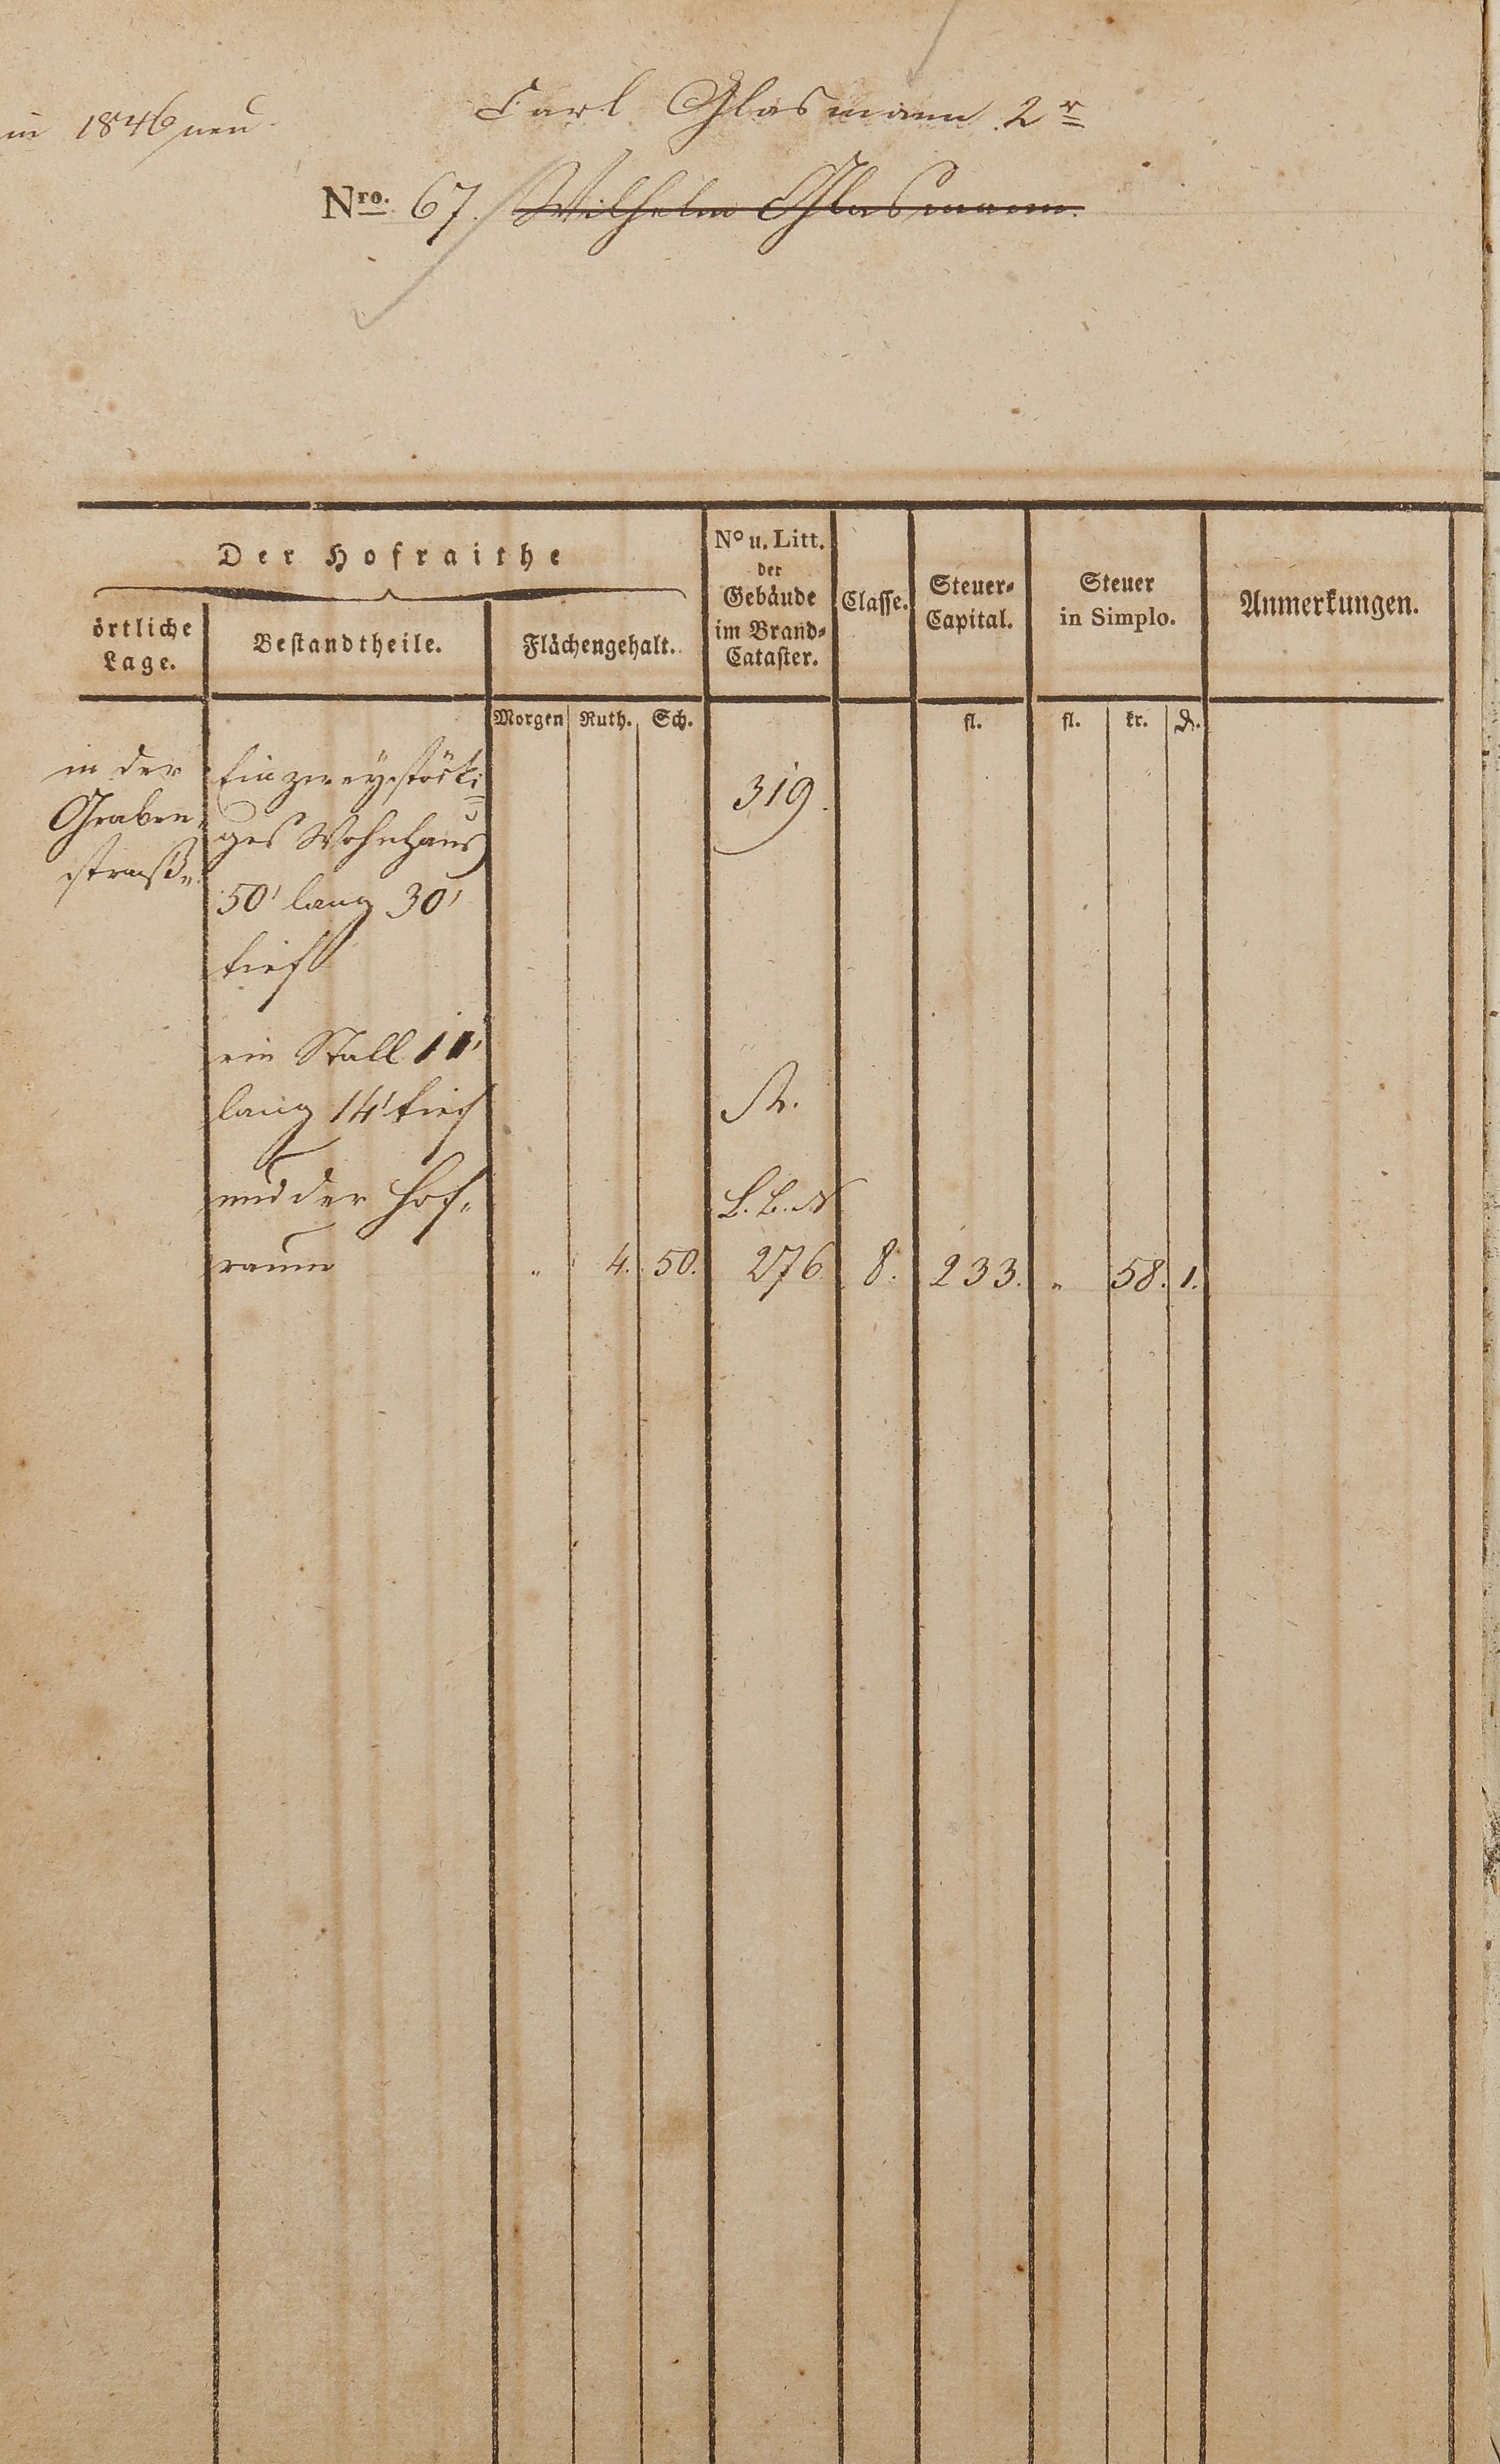 Carl Glasmann 2r
in 1846 neu
Nro. 67. Wilhelm Glasmann.
Der Hofraithe
örtliche Lage.
Bestandtheile.
Flächengehalt.
No u. Litt.
der
Gebäude
im Brand-
Cataster.
Classe.
Steuer-
Capital.
Steuer
in Simplo.
Anmerkungen.
Morgen Ruth. Sch. fl. fl. kr. d.
in der
Graben-
straße
Ein zweystöcki-
ges Wohnhaus
50' lang 30'
tief
319.
ein Stall 11'
lang 14' tief
und der Hof-
raum
St.
L. B. N
" 4. 50. 276 8. 233. " 58. 1.